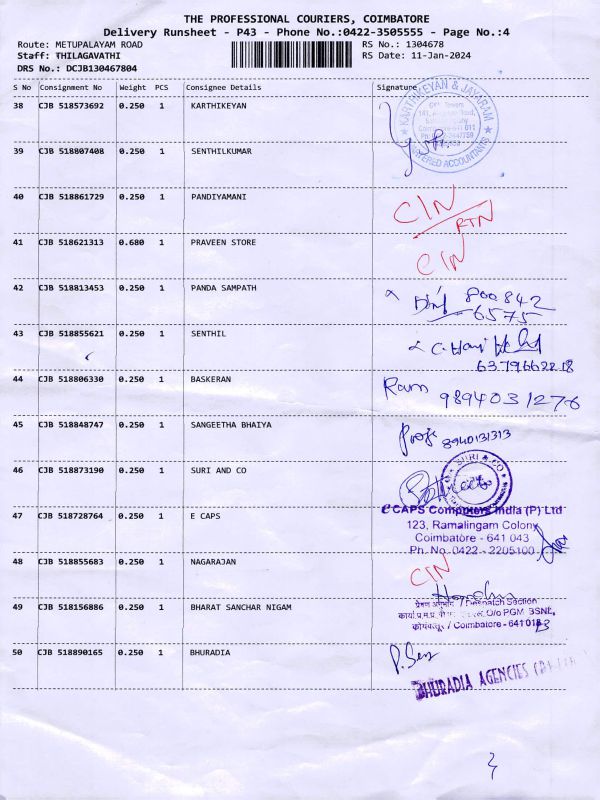 THE PROFESSIONAL COURIERS, COIMBATORE
Delivery Runsheet - P43 - Phone No.:0422-3505555 - Page No.:4
Route: METUPALAYAM ROAD RS No.: 1304678
Staff: THILAGAVATHI RS Date: 11-Jan-2024
DRS No.: DCJB130467804
S No Consignment No Weight PCS Consignee Details Signature
38 CJB 518573692 0.250 1 KARTHIKEYAN
KARTHIKEYAN & JAYARAM
CHARTERED ACCOUNTANTS
39 CJB 518807408 0.250 1 SENTHILKUMAR
40 CJB 518861729 0.250 1 PANDIYAMANI CIN
RTN
41 CJB 518621313 0.680 1 PRAVEEN STORE CIN
42 CJB 518813453 0.250 1 PANDA SAMPATH 800842
6575
43 CJB 518855621 0.250 1 SENTHIL
6379662218
44 CJB 518806330 0.250 1 BASKERAN Ram 9894031276
45 CJB 518848747 0.250 1 SANGEETHA BHAIYA 8940131313
46 CJB 518873190 0.250 1 SURI AND CO SURI & CO
47 CJB 518728764 0.250 1 E CAPS eCAPS Computers India (P) Ltd
123, Ramalingam Colony
Coimbatore - 641 043
Ph. No. 0422 - 2205100
48 CJB 518855683 0.250 1 NAGARAJAN CIN
49 CJB 518156886 0.250 1 BHARAT SANCHAR NIGAM
/ Despatch Section
O/o PGM BSNL,
/ Coimbatore - 641 0
50 CJB 518890165 0.250 1 BHURADIA
BHURADIA AGENCIES